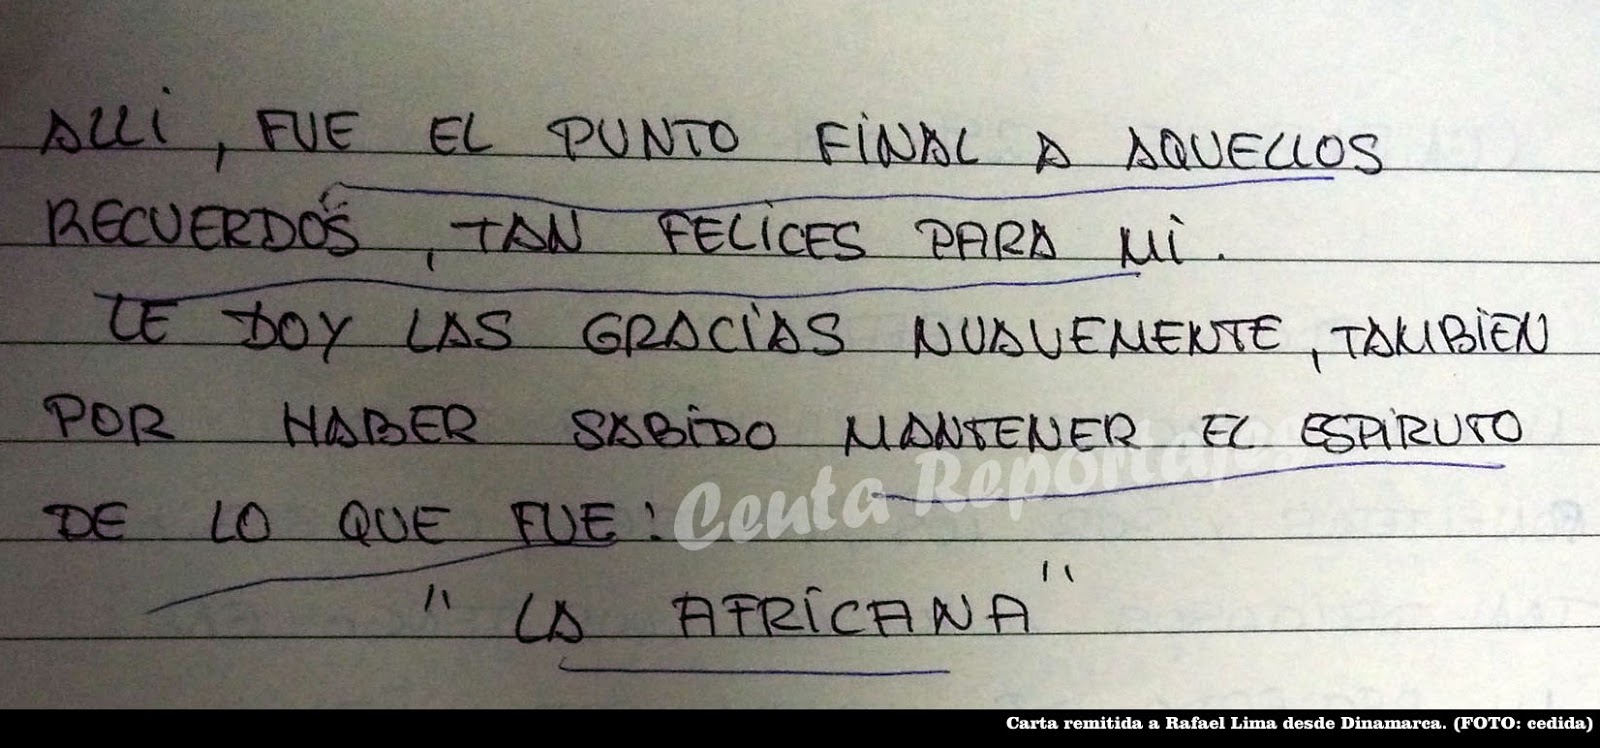 ALLI, FUE EL PUNTO FINAL A AQUELLOS
RECUERDOS, TAN FELICES PARA MI.
LE DOY LAS GRACIAS NUAVEMENTE, TAMBIEN
POR HABER SABIDO MANTENER EL ESPIRUTO
DE LO QUE FUE:
"LA AFRICANA"
Ceuta Reportajes
Carta remitida a Rafael Lima desde Dinamarca. (FOTO: cedida)